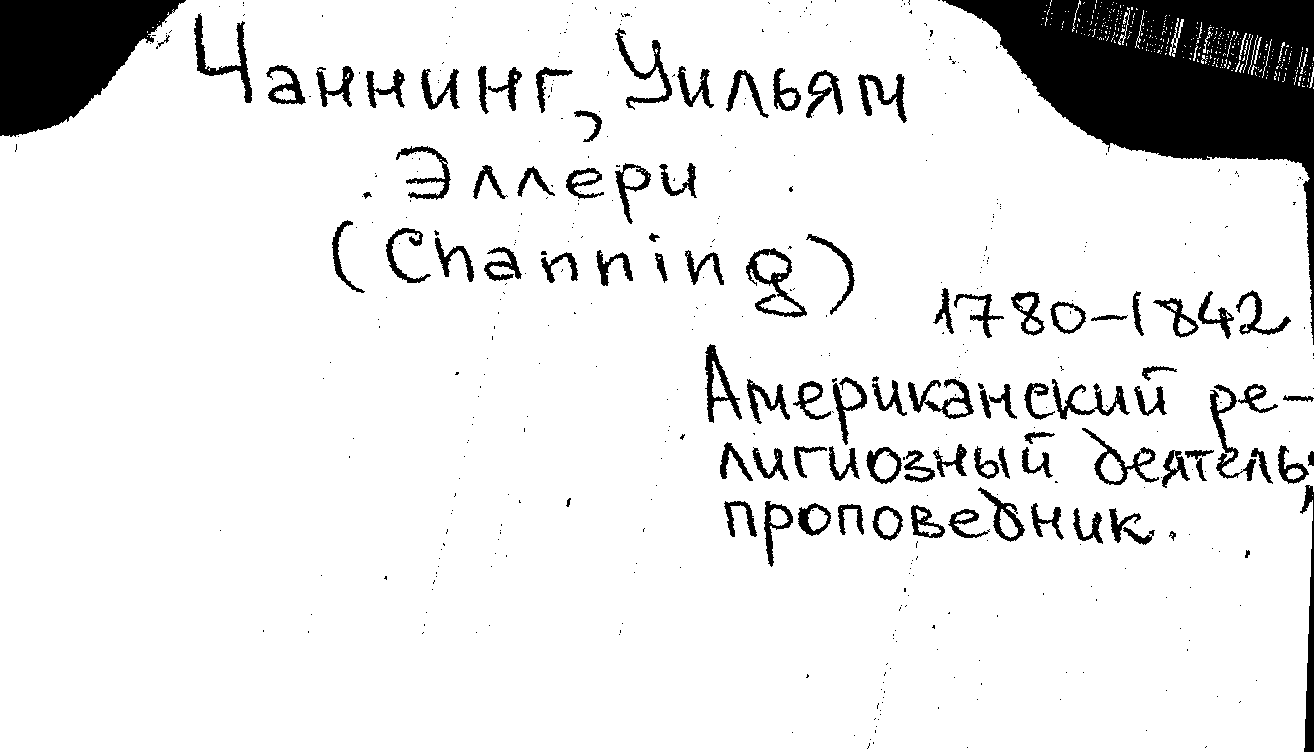 Чаннинг, Уильям
Эллери
(Channing)
1780-1842
Американский ре-
лигиозный деятель,
проповедник.